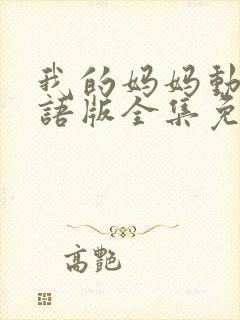 我的妈妈動
語版全集免
高艷